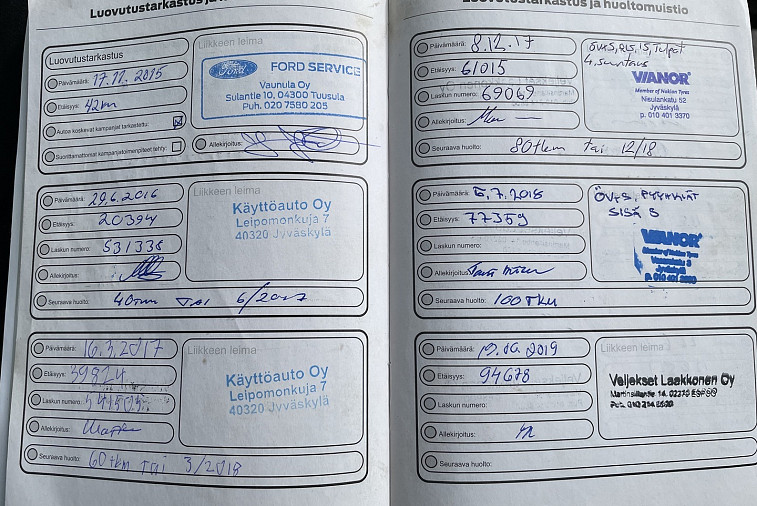 Luovutustarkastus ja
Luovutustarkastus
Päivämäärä: 17.11.2015
Etäisyys: 42km
Autoa koskevat kampanjat tarkastettu:
Suorittamattomat kampanjatoimenpiteet tehty:
Liikkeen leima
Ford
FORD SERVICE
Vaunula Oy
Sulantie 10, 04300 Tuusula
Puh. 020 7580 205
Allekirjoitus:
Päivämäärä: 29.6.2016
Etäisyys: 20394
Laskun numero: 531338
Allekirjoitus:
Seuraava huolto: 40tkm TAI 6/2017
Liikkeen leima
Käyttöauto Oy
Leipomonkuja 7
40320 Jyväskylä
Päivämäärä: 16.3.2017
Etäisyys: 39824
Laskun numero:
Allekirjoitus:
Seuraava huolto: 60tkm TAI 3/2018
Liikkeen leima
Käyttöauto Oy
Leipomonkuja 7
40320 Jyväskylä
Luovutustarkastus ja huoltomuistio
Päivämäärä: 8.12.17
Etäisyys: 61015
Laskun numero: 69069
Allekirjoitus:
Seuraava huolto: 80tkm tai 12/18
VIANOR
Member of Nokian Tyres
Nisulankatu 52
Jyväskylä
p. 010 401 3370
Päivämäärä: 5.7.2018
Etäisyys: 77359
Laskun numero:
Allekirjoitus:
Seuraava huolto: 100TKM
ÖVKS, PYYHKIJÄT
SISÄ S
VIANOR
Member of Nokian Tyres
Jyväskylä
Päivämäärä: 19.06.2019
Etäisyys: 94678
Laskun numero:
Allekirjoitus:
Seuraava huolto:
Liikkeen leima
Veljekset Laakkonen Oy
Martinsillantie 14, 02270 ESPOO